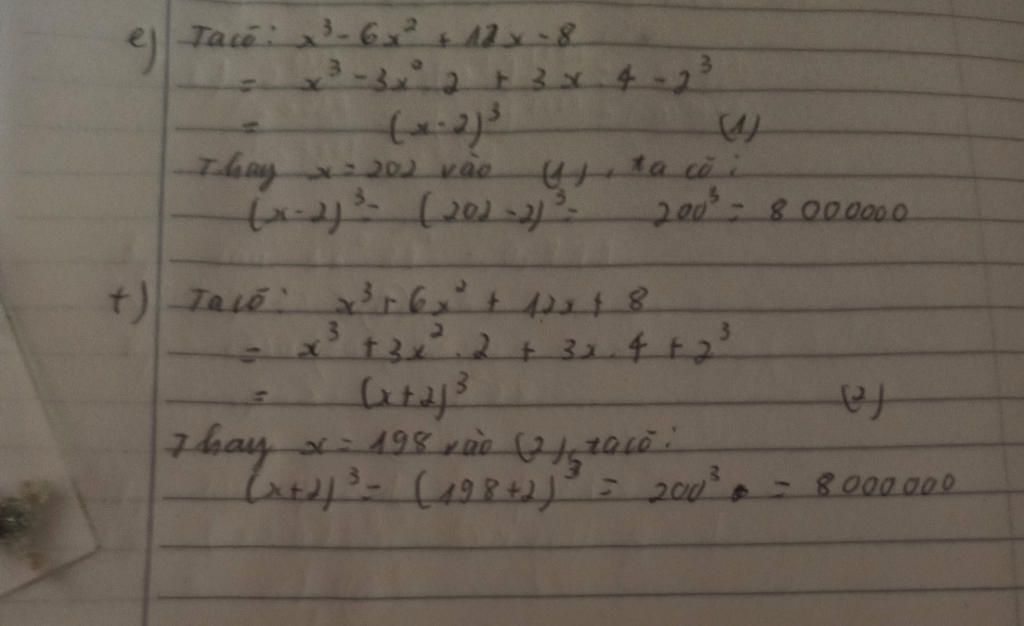 e) Ta có: x³ - 6x² + 12x - 8
= x³ - 3x².2 + 3x.4 - 2³
= (x-2)³ (1)
Thay x = 202 vào (1), ta có:
(x-2)³ = (202-2)³ = 200³ = 8000000
f) Ta có: x³ + 6x² + 12x + 8
= x³ + 3x².2 + 3x.4 + 2³
= (x+2)³ (2)
Thay x = 198 vào (2), ta có:
(x+2)³ = (198+2)³ = 200³ = 8000000